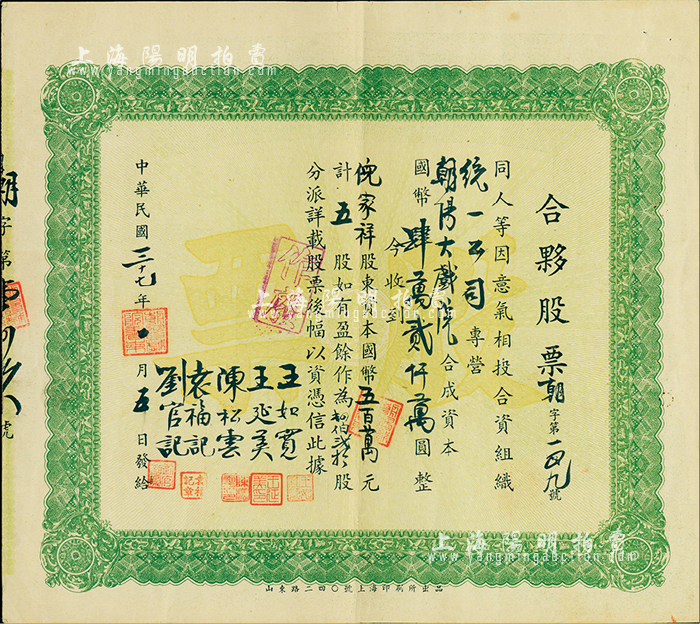 上海陽明拍賣
www.yangmingauction.com
合夥股票朝字第一四九號
同人等因意氣相投合資組織
統一公司專營
朝陽大戲院合成資本
國幣肆萬貳仟萬圓整
今收到
倪家祥股東資本國幣五百萬元
計五股如有盈餘作為股
分派詳載股票後幅以資憑信此據
王如賓
王延美
陳松雲
袁福記
劉官記
中華民國三十七年月五日發給
作廢
股票
朝字第號
上海陽明拍賣
www.yangmingauction.com
上海陽明拍賣
www.yangmingauction.com
山東路二四〇號上海印刷所出品